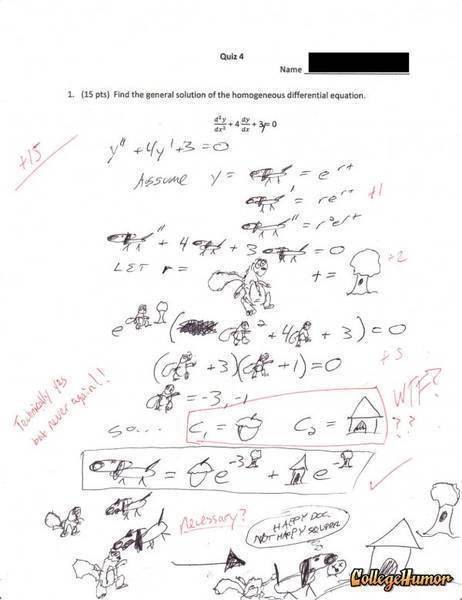 Quiz 4
Name
1. (15 pts) Find the general solution of the homogeneous differential equation.
d²y/dx² + 4 dy/dx + 3y = 0
+15
y'' + 4y' + 3 = 0
ASSUME y = = e^rt
' = re^rt
+1
'' = r²e^rt
'' + 4 + 3 = 0
LET r = t =
+2
e ( ² + 4 + 3) = 0
( + 3)( + 1) = 0
+5
= -3, -1
SO... C₁ = C₂ =
WTF?
??
Technically yes
but never again!!
= e^-3 + e^-
Necessary?
HAPPY DOG
NOT HAPPY SQUIRREL
CollegeHumor